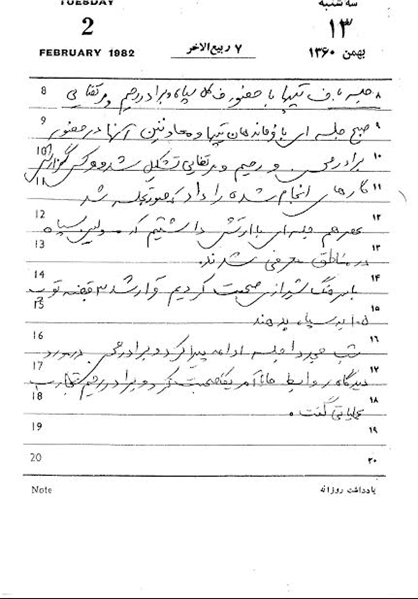 TUESDAY سه شنبه
2 ۱۳
FEBRUARY 1982 ۷ ربیع الاخر بهمن ۱۳۶۰
8 جلسه با ف تیپها با حضور ف کل سپاه و برادر رحیم و ۸
9 صبح جلسه ای با فرماندهان تیپها و معاونین آنها در حضور ۹
10 برادر محسن و رحیم و تشکیل شد و هر کس گزارش ۱۰
11 کارهای انجام شده را داد جلسه شد ۱۱
12 عصر هم جلسه ای با ارتش داشتیم که مسولین سپاه ۱۲
13 در مناطق معرفی شدند. ۱۳
14 با سرهنگ شیرازی صحبت کردیم قرار شد ۳ قبضه توپ ۱۴
15 ۱۰۵ به سپاه بدهند ۱۵
16 شب مجددا جلسه ادامه پیدا کرد و برادر محسن در مورد ۱۶
17 دیدگاه روابط ما با آمریکا صحبت کرد و برادر رحیم تجارب ۱۷
18 عملیاتی گفت. ۱۸
19 ۱۹
20 ۲۰
Note یادداشت روزانه